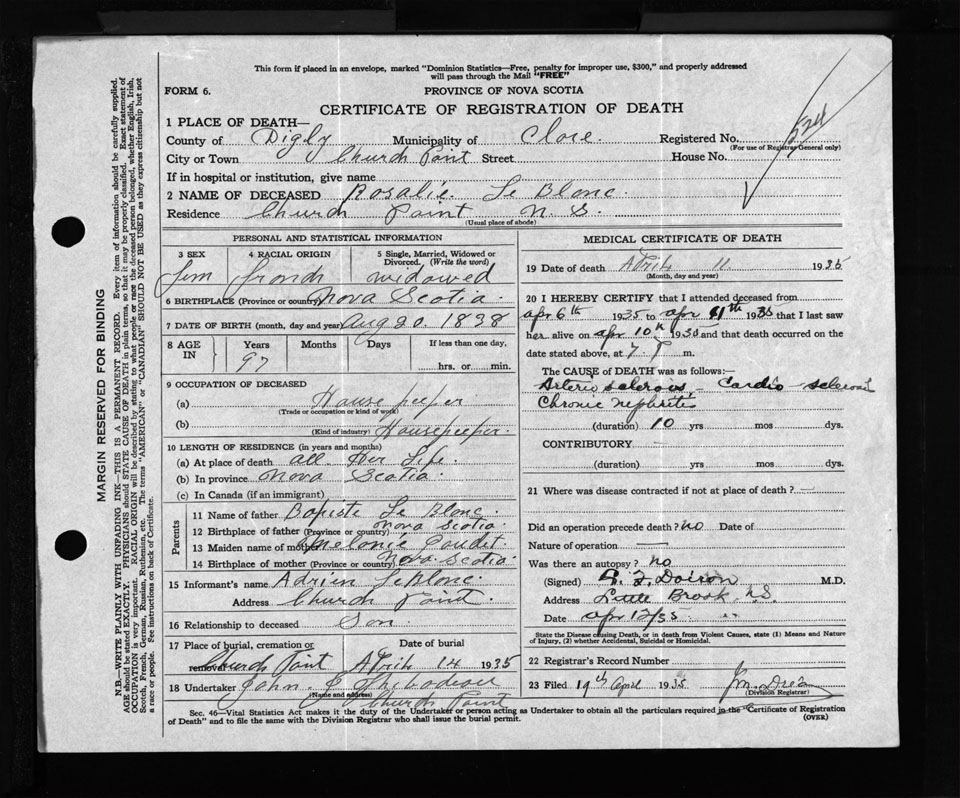 This form if placed in an envelope, marked "Dominion Statistics—Free, penalty for improper use, $300," and properly addressed
will pass through the Mail "FREE"
FORM 6.
PROVINCE OF NOVA SCOTIA
CERTIFICATE OF REGISTRATION OF DEATH
1 PLACE OF DEATH—
County of Digby Municipality of Clare Registered No.
(For use of Registrar General only)
City or Town Church Point Street House No.
If in hospital or institution, give name
2 NAME OF DECEASED Rosalie Le Blanc
Residence Church Point N. S.
(Usual place of abode)
PERSONAL AND STATISTICAL INFORMATION
3 SEX 4 RACIAL ORIGIN 5 Single, Married, Widowed or
Divorced. (Write the word)
Fem French widowed
6 BIRTHPLACE (Province or country) Nova Scotia
7 DATE OF BIRTH (month, day and year) Aug 20. 1838
8 AGE IN Years Months Days If less than one day,
97 hrs. or min.
9 OCCUPATION OF DECEASED
(a) House keeper
(Trade or occupation or kind of work)
(b) Housekeeper
(Kind of industry)
10 LENGTH OF RESIDENCE (in years and months)
(a) At place of death all Her Life
(b) In province Nova Scotia
(c) In Canada (if an immigrant)
Parents
11 Name of father Bapiste Le Blanc
12 Birthplace of father (Province or country) Nova Scotia
13 Maiden name of mother Melonie
14 Birthplace of mother (Province or country) Nova Scotia
15 Informant's name Adrien LeBlanc
Address Church Point
16 Relationship to deceased Son
17 Place of burial, cremation or removal Date of burial
Church Point April 14 1935
18 Undertaker John Thibodeau
(Name and address)
Church Point
MEDICAL CERTIFICATE OF DEATH
19 Date of death April 11 1935
(Month, day and year)
20 I HEREBY CERTIFY that I attended deceased from
apr 6th 1935 to apr 11th 1935 that I last saw
her alive on apr 10th 1935 and that death occurred on the
date stated above, at 7 P m.
The CAUSE of DEATH was as follows:
Arterio sclerosis — Cardio sclerosis
Chronic nephritis
(duration) 10 yrs mos dys.
CONTRIBUTORY
(duration) yrs mos dys.
21 Where was disease contracted if not at place of death? —
Did an operation precede death? no Date of
Nature of operation —
Was there an autopsy? no
(Signed) Doiron M.D.
Address Little Brook N.S.
Date apr 12/35
State the Disease causing Death, or in death from Violent Causes, state (1) Means and Nature
of Injury, (2) whether Accidental, Suicidal or Homicidal.
22 Registrar's Record Number
23 Filed 19th April 1935
(Division Registrar)
Sec. 46—Vital Statistics Act makes it the duty of the Undertaker or person acting as Undertaker to obtain all the particulars required in the "Certificate of Registration
of Death" and to file the same with the Division Registrar who shall issue the burial permit. (OVER)
MARGIN RESERVED FOR BINDING
N.B.—WRITE PLAINLY WITH UNFADING INK—THIS IS A PERMANENT RECORD. Every item of information should be carefully supplied.
AGE should be stated EXACTLY. PHYSICIANS should STATE CAUSE OF DEATH in plain terms, so that it may be properly classified. Exact statement of
OCCUPATION is very important. RACIAL ORIGIN will be described by stating to what people or race the deceased person belonged, whether English, Irish,
Scotch, French, German, Russian, Ruthenian, etc. The terms "AMERICAN" or "CANADIAN" SHOULD NOT BE USED as they express citizenship but not
a race or people. See instructions on back of Certificate.